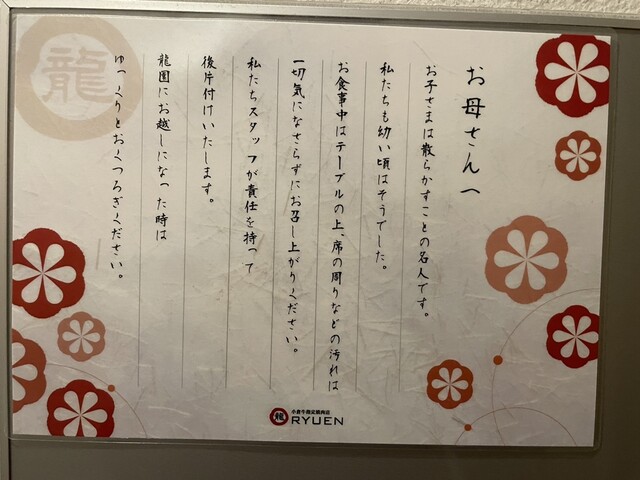 お母さんへ
お子さまは散らかすことの名人です。
私たちも幼い頃はそうでした。
お食事中はテーブルの上、席の周りなどの汚れは
一切気になさらずにお召し上がりください。
私たちスタッフが責任を持って
後片付けいたします。
龍園にお越しになった時は
ゆっくりとおくつろぎください。
龍
小倉牛指定焼肉店
RYUEN